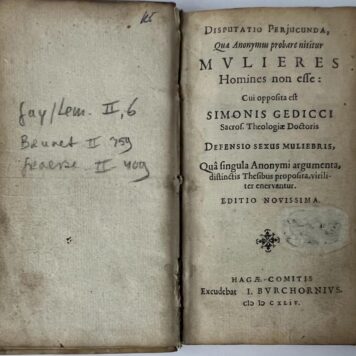 Gay/Lem. II, 6
Brunet II 759
Graesse II 409
DISPUTATIO PERJUCUNDA,
Qua Anonymus probare nititur
MVLIERES
Homines non esse:
Cui opposita est
SIMONIS GEDICCI
Sacros. Theologiæ Doctoris
DEFENSIO SEXUS MULIEBRIS,
Quâ singula Anonymi argumenta,
distinctis Thesibus proposita, viriliter
enervantur.
EDITIO NOVISSIMA.
HAGÆ-COMITIS
Excudebat I. BVRCHORNIVS.
CIↃ IↃ CXLIV.